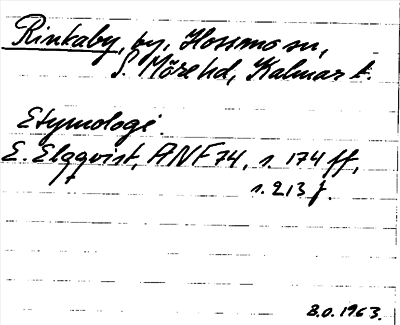 Rinkaby, by, Hossmo sn,
S. Möre hd, Kalmar l.
Etymologi.
E. Elqqvist, ANF 74, s. 174 ff,
s. 213 f.
B.O. 1963.